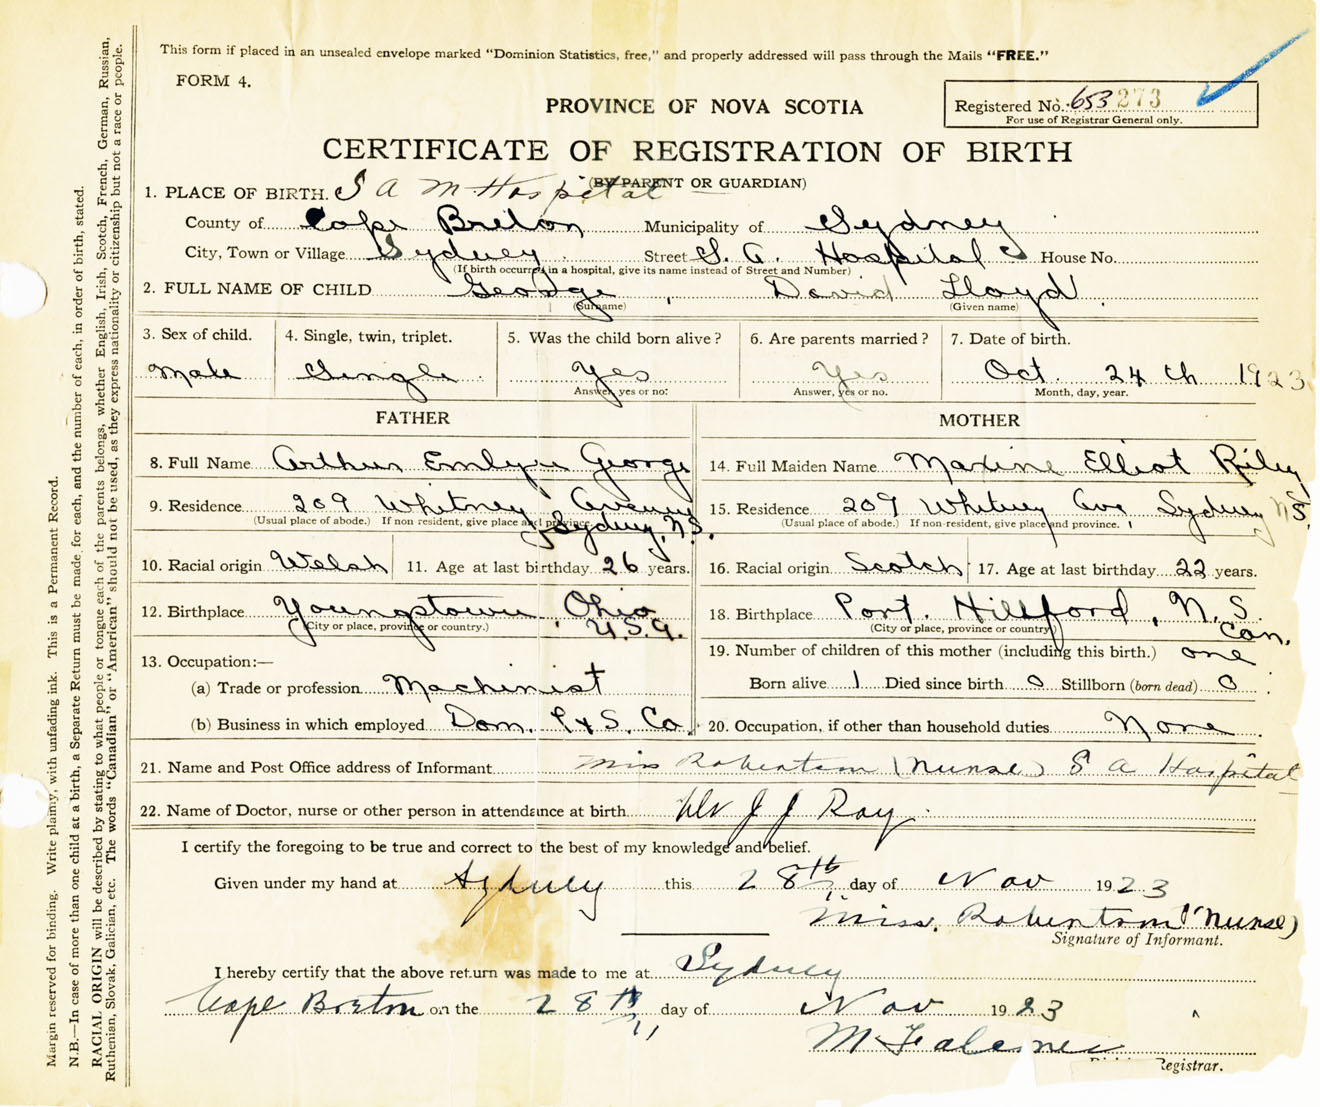 This form if placed in an unsealed envelope marked "Dominion Statistics, free," and properly addressed will pass through the Mails "FREE."
FORM 4.
Registered No. 653 273
For use of Registrar General only.
PROVINCE OF NOVA SCOTIA
CERTIFICATE OF REGISTRATION OF BIRTH
(BY PARENT OR GUARDIAN)
1. PLACE OF BIRTH. S A M Hospital
County of Cape Breton Municipality of Sydney
City, Town or Village Sydney Street S. A. Hospital House No.
(If birth occurred in a hospital, give its name instead of Street and Number)
2. FULL NAME OF CHILD George, David Lloyd
(Surname) (Given name)
3. Sex of child. 4. Single, twin, triplet. 5. Was the child born alive? 6. Are parents married? 7. Date of birth.
Male Single Yes Yes Oct. 24th 1923
Answer, yes or no. Answer, yes or no. Month, day, year.
FATHER
8. Full Name Arthur Emlyn George
9. Residence 209 Whitney Avenue
(Usual place of abode.) If non resident, give place and province.
Sydney, N.S.
10. Racial origin Welsh 11. Age at last birthday 26 years.
12. Birthplace Youngstown, Ohio
(City or place, province or country.) U.S.A.
13. Occupation:—
(a) Trade or profession Machinist
(b) Business in which employed Dom. I & S. Co.
MOTHER
14. Full Maiden Name Maxine Elliot Riley
15. Residence 209 Whitney Ave Sydney N.S.
(Usual place of abode.) If non-resident, give place and province.
16. Racial origin Scotch 17. Age at last birthday 22 years.
18. Birthplace Port. Hillford, N.S.
(City or place, province or country) Can.
19. Number of children of this mother (including this birth.) one
Born alive 1 Died since birth 0 Stillborn (born dead) 0
20. Occupation, if other than household duties None
21. Name and Post Office address of Informant Miss Robertson (Nurse) S A Hospital
22. Name of Doctor, nurse or other person in attendance at birth Dr J J Roy
I certify the foregoing to be true and correct to the best of my knowledge and belief.
Given under my hand at Sydney this 28th day of Nov 1923
Miss. Robertson (Nurse)
Signature of Informant.
I hereby certify that the above return was made to me at Sydney
Cape Breton on the 28th day of Nov 1923
Registrar.
Margin reserved for binding. Write plainly, with unfading ink. This is a Permanent Record.
N.B.—In case of more than one child at a birth, a Separate Return must be made for each, and the number of each, in order of birth, stated.
RACIAL ORIGIN will be described by stating to what people or tongue each of the parents belongs, whether English, Irish, Scotch, French, German, Russian,
Ruthenian, Slovak, Galician, etc. The words "Canadian" or "American" should not be used, as they express nationality or citizenship but not a race or people.